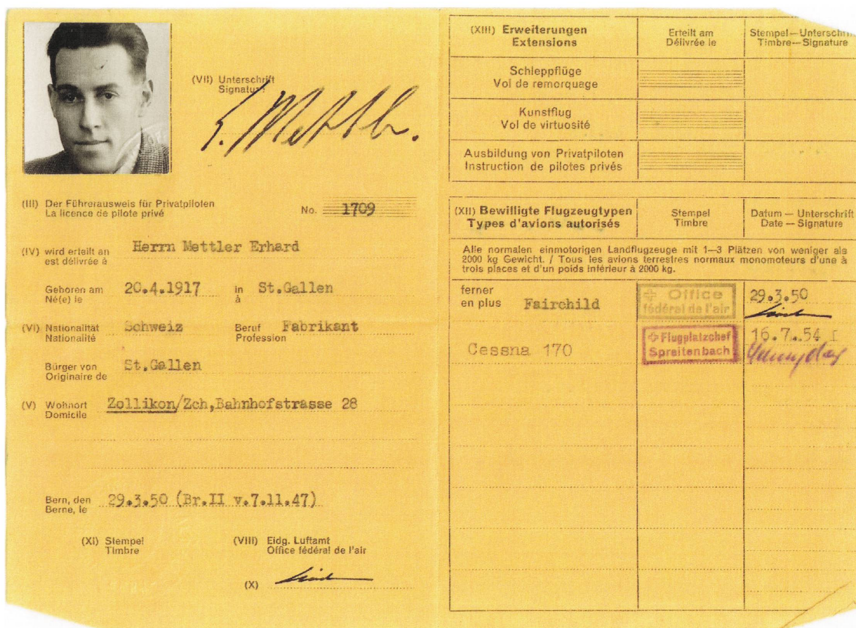 (VII) Unterschrift
Signature
E. Mettler.
(III) Der Führerausweis für Privatpiloten
La licence de pilote privé
No. 1709
(IV) wird erteilt an
est délivrée à
Herrn Mettler Erhard
Geboren am
Né(e) le
20.4.1917
in
à
St.Gallen
(VI) Nationalität
Nationalité
Schweiz
Beruf
Profession
Fabrikant
Bürger von
Originaire de
St.Gallen
(V) Wohnort
Domicile
Zollikon/Zch,Bahnhofstrasse 28
Bern, den
Berne, le
29.3.50 (Br.II v.7.11.47)
(XI) Stempel
Timbre
(VIII) Eidg. Luftamt
Office fédéral de l'air
(X)
(XIII) Erweiterungen
Extensions
Erteilt am
Délivrée le
Stempel—Unterschrift
Timbre—Signature
Schleppflüge
Vol de remorquage
Kunstflug
Vol de virtuosité
Ausbildung von Privatpiloten
Instruction de pilotes privés
(XII) Bewilligte Flugzeugtypen
Types d'avions autorisés
Stempel
Timbre
Datum — Unterschrift
Date — Signature
Alle normalen einmotorigen Landflugzeuge mit 1—3 Plätzen von weniger als
2000 kg Gewicht. / Tous les avions terrestres normaux monomoteurs d'une à
trois places et d'un poids inférieur à 2000 kg.
ferner
en plus
Fairchild
Office
fédéral de l'air
29.3.50
Cessna 170
Flugplatzchef
Spreitenbach
16.7.54